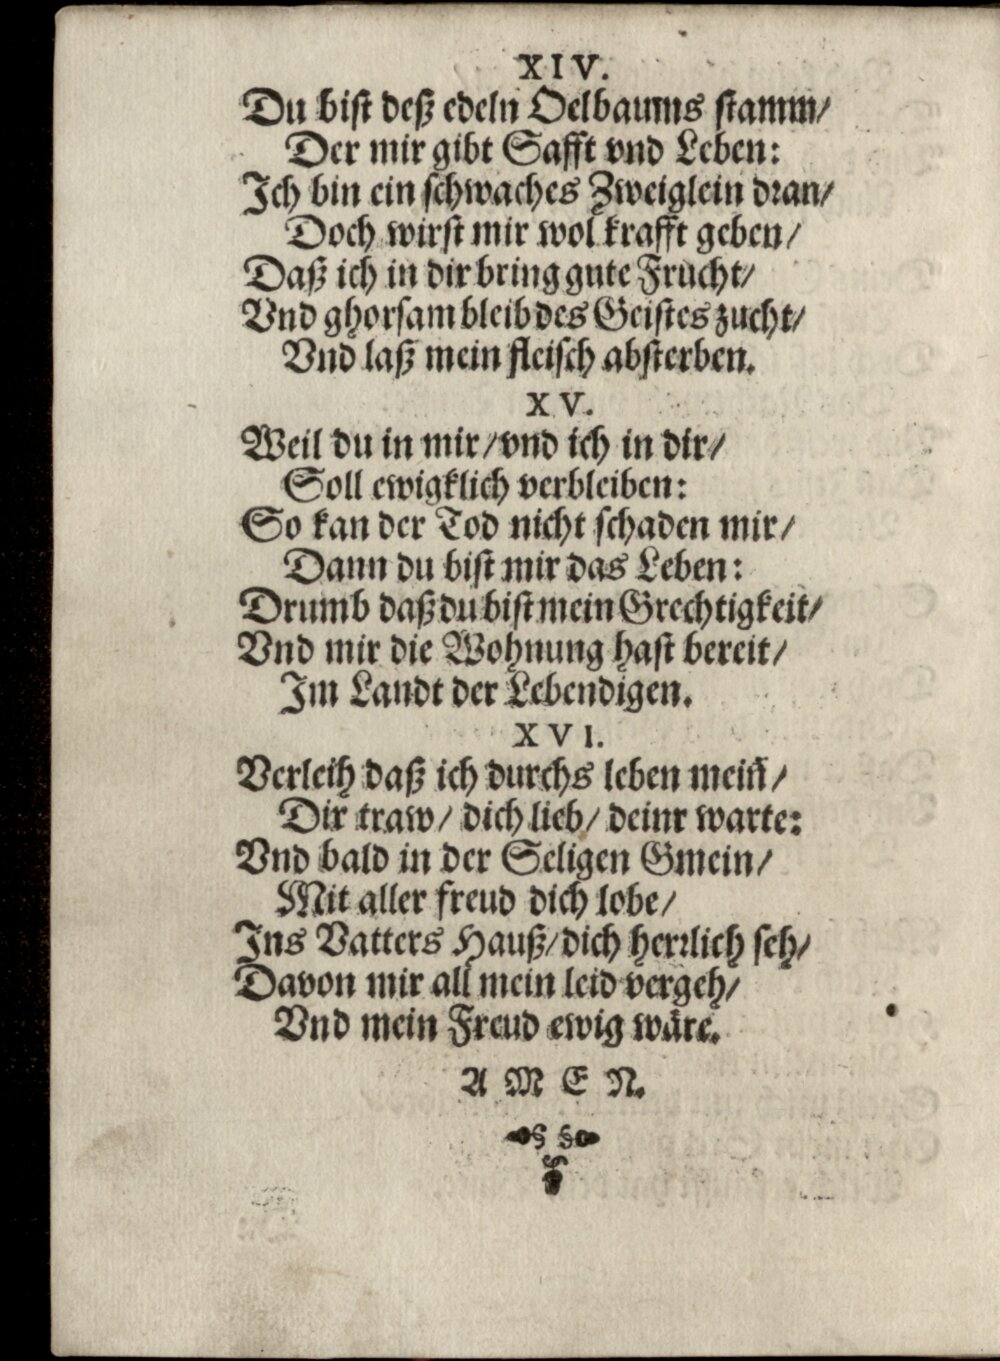 XIV.
Du bist deß edeln Oelbaums stamm/
Der mir gibt Safft vnd Leben:
Ich bin ein schwaches Zweiglein dran/
Doch wirst mir wol krafft geben/
Daß ich in dir bring gute Frucht/
Vnd ghorsam bleib des Geistes zucht/
Vnd laß mein fleisch absterben.
XV.
Weil du in mir/ vnd ich in dir/
Soll ewigklich verbleiben:
So kan der Tod nicht schaden mir/
Dann du bist mir das Leben:
Drumb daß du bist mein Grechtigkeit/
Vnd mir die Wohnung hast bereit/
Im Landt der Lebendigen.
XVI.
Verleih daß ich durchs leben mein̄/
Dir traw/ dich lieb/ deinr warte:
Vnd bald in der Seligen Gmein/
Mit aller freud dich lobe/
Ins Vatters Hauß/ dich herꝛlich seh/
Davon mir all mein leid vergeh/
Vnd mein Freud ewig wäre.
AMEN.